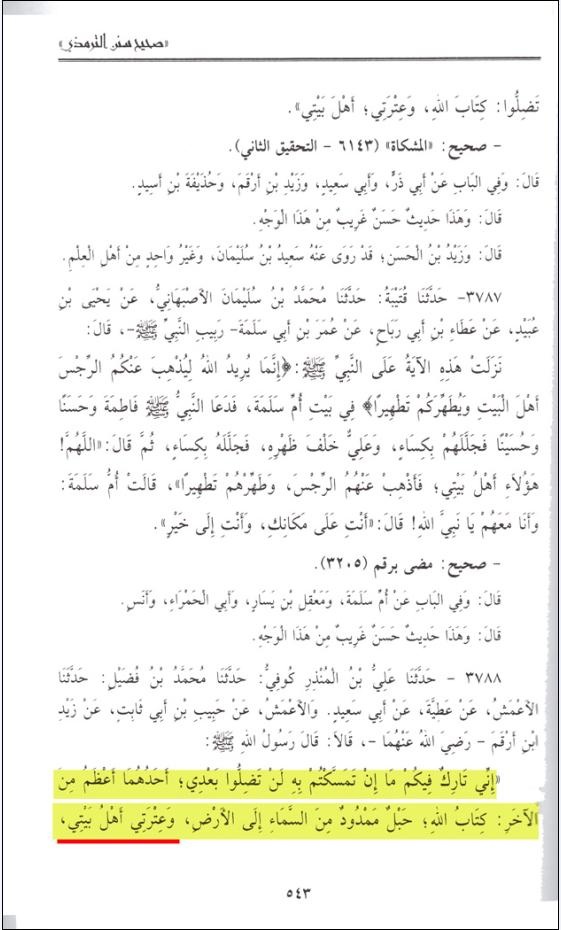 «صحيح سنن الترمذي»
تَضِلُّوا: كِتَابَ اللهِ، وَعِتْرَتِي؛ أَهْلَ بَيْتِي».
- صحيح: «المشكاة» (٦١٤٣ - التحقيق الثاني).
قَالَ: وَفِي الْبَابِ عَنْ أَبِي ذَرٍّ، وَأَبِي سَعِيدٍ، وَزَيْدِ بْنِ أَرْقَمَ، وَحُذَيْفَةَ بْنِ أَسِيدٍ.
قَالَ: وَهَذَا حَدِيثٌ حَسَنٌ غَرِيبٌ مِنْ هَذَا الْوَجْهِ.
قَالَ: وَزَيْدُ بْنُ الْحَسَنِ؛ قَدْ رَوَى عَنْهُ سَعِيدُ بْنُ سُلَيْمَانَ، وَغَيْرُ وَاحِدٍ مِنْ أَهْلِ الْعِلْمِ.
٣٧٨٧- حَدَّثَنَا قُتَيْبَةُ: حَدَّثَنَا مُحَمَّدُ بْنُ سُلَيْمَانَ الأَصْبَهَانِيُّ، عَنْ يَحْيَى بْنِ
عُبَيْدٍ، عَنْ عَطَاءِ بْنِ أَبِي رَبَاحٍ، عَنْ عُمَرَ بْنِ أَبِي سَلَمَةَ- رَبِيبِ النَّبِيِّ ﷺ-، قَالَ:
نَزَلَتْ هَذِهِ الآيَةُ عَلَى النَّبِيِّ ﷺ:﴿إِنَّمَا يُرِيدُ اللهُ لِيُذْهِبَ عَنْكُمُ الرِّجْسَ
أَهْلَ الْبَيْتِ وَيُطَهِّرَكُمْ تَطْهِيرًا﴾ فِي بَيْتِ أُمِّ سَلَمَةَ، فَدَعَا النَّبِيُّ ﷺ فَاطِمَةَ وَحَسَنًا
وَحُسَيْنًا فَجَلَّلَهُمْ بِكِسَاءٍ، وَعَلِيٌّ خَلْفَ ظَهْرِهِ، فَجَلَّلَهُ بِكِسَاءٍ، ثُمَّ قَالَ:«اللَّهُمَّ!
هَؤُلاَءِ أَهْلُ بَيْتِي؛ فَأَذْهِبْ عَنْهُمُ الرِّجْسَ، وَطَهِّرْهُمْ تَطْهِيرًا»، قَالَتْ أُمُّ سَلَمَةَ:
وَأَنَا مَعَهُمْ يَا نَبِيَّ اللهِ! قَالَ:«أَنْتِ عَلَى مَكَانِكِ، وَأَنْتِ إِلَى خَيْرٍ».
- صحيح: مضى برقم (٣٢٠٥).
قَالَ: وَفِي الْبَابِ عَنْ أُمِّ سَلَمَةَ، وَمَعْقِلِ بْنِ يَسَارٍ، وَأَبِي الْحَمْرَاءِ، وَأَنَسٍ.
قَالَ: وَهَذَا حَدِيثٌ حَسَنٌ غَرِيبٌ مِنْ هَذَا الْوَجْهِ.
٣٧٨٨ - حَدَّثَنَا عَلِيُّ بْنُ الْمُنْذِرِ كُوفِيٌّ: حَدَّثَنَا مُحَمَّدُ بْنُ فُضَيْلٍ: حَدَّثَنَا
الأَعْمَشُ، عَنْ عَطِيَّةَ، عَنْ أَبِي سَعِيدٍ. وَالأَعْمَشُ، عَنْ حَبِيبِ بْنِ أَبِي ثَابِتٍ، عَنْ زَيْدِ
ابْنِ أَرْقَمَ - رَضِيَ اللهُ عَنْهُمَا -، قَالاَ: قَالَ رَسُولُ اللهِ ﷺ:
«إِنِّي تَارِكٌ فِيكُمْ مَا إِنْ تَمَسَّكْتُمْ بِهِ لَنْ تَضِلُّوا بَعْدِي؛ أَحَدُهُمَا أَعْظَمُ مِنَ
الآخَرِ: كِتَابُ اللهِ؛ حَبْلٌ مَمْدُودٌ مِنَ السَّمَاءِ إِلَى الأَرْضِ، وَعِتْرَتِي أَهْلُ بَيْتِي،
٥٤٣